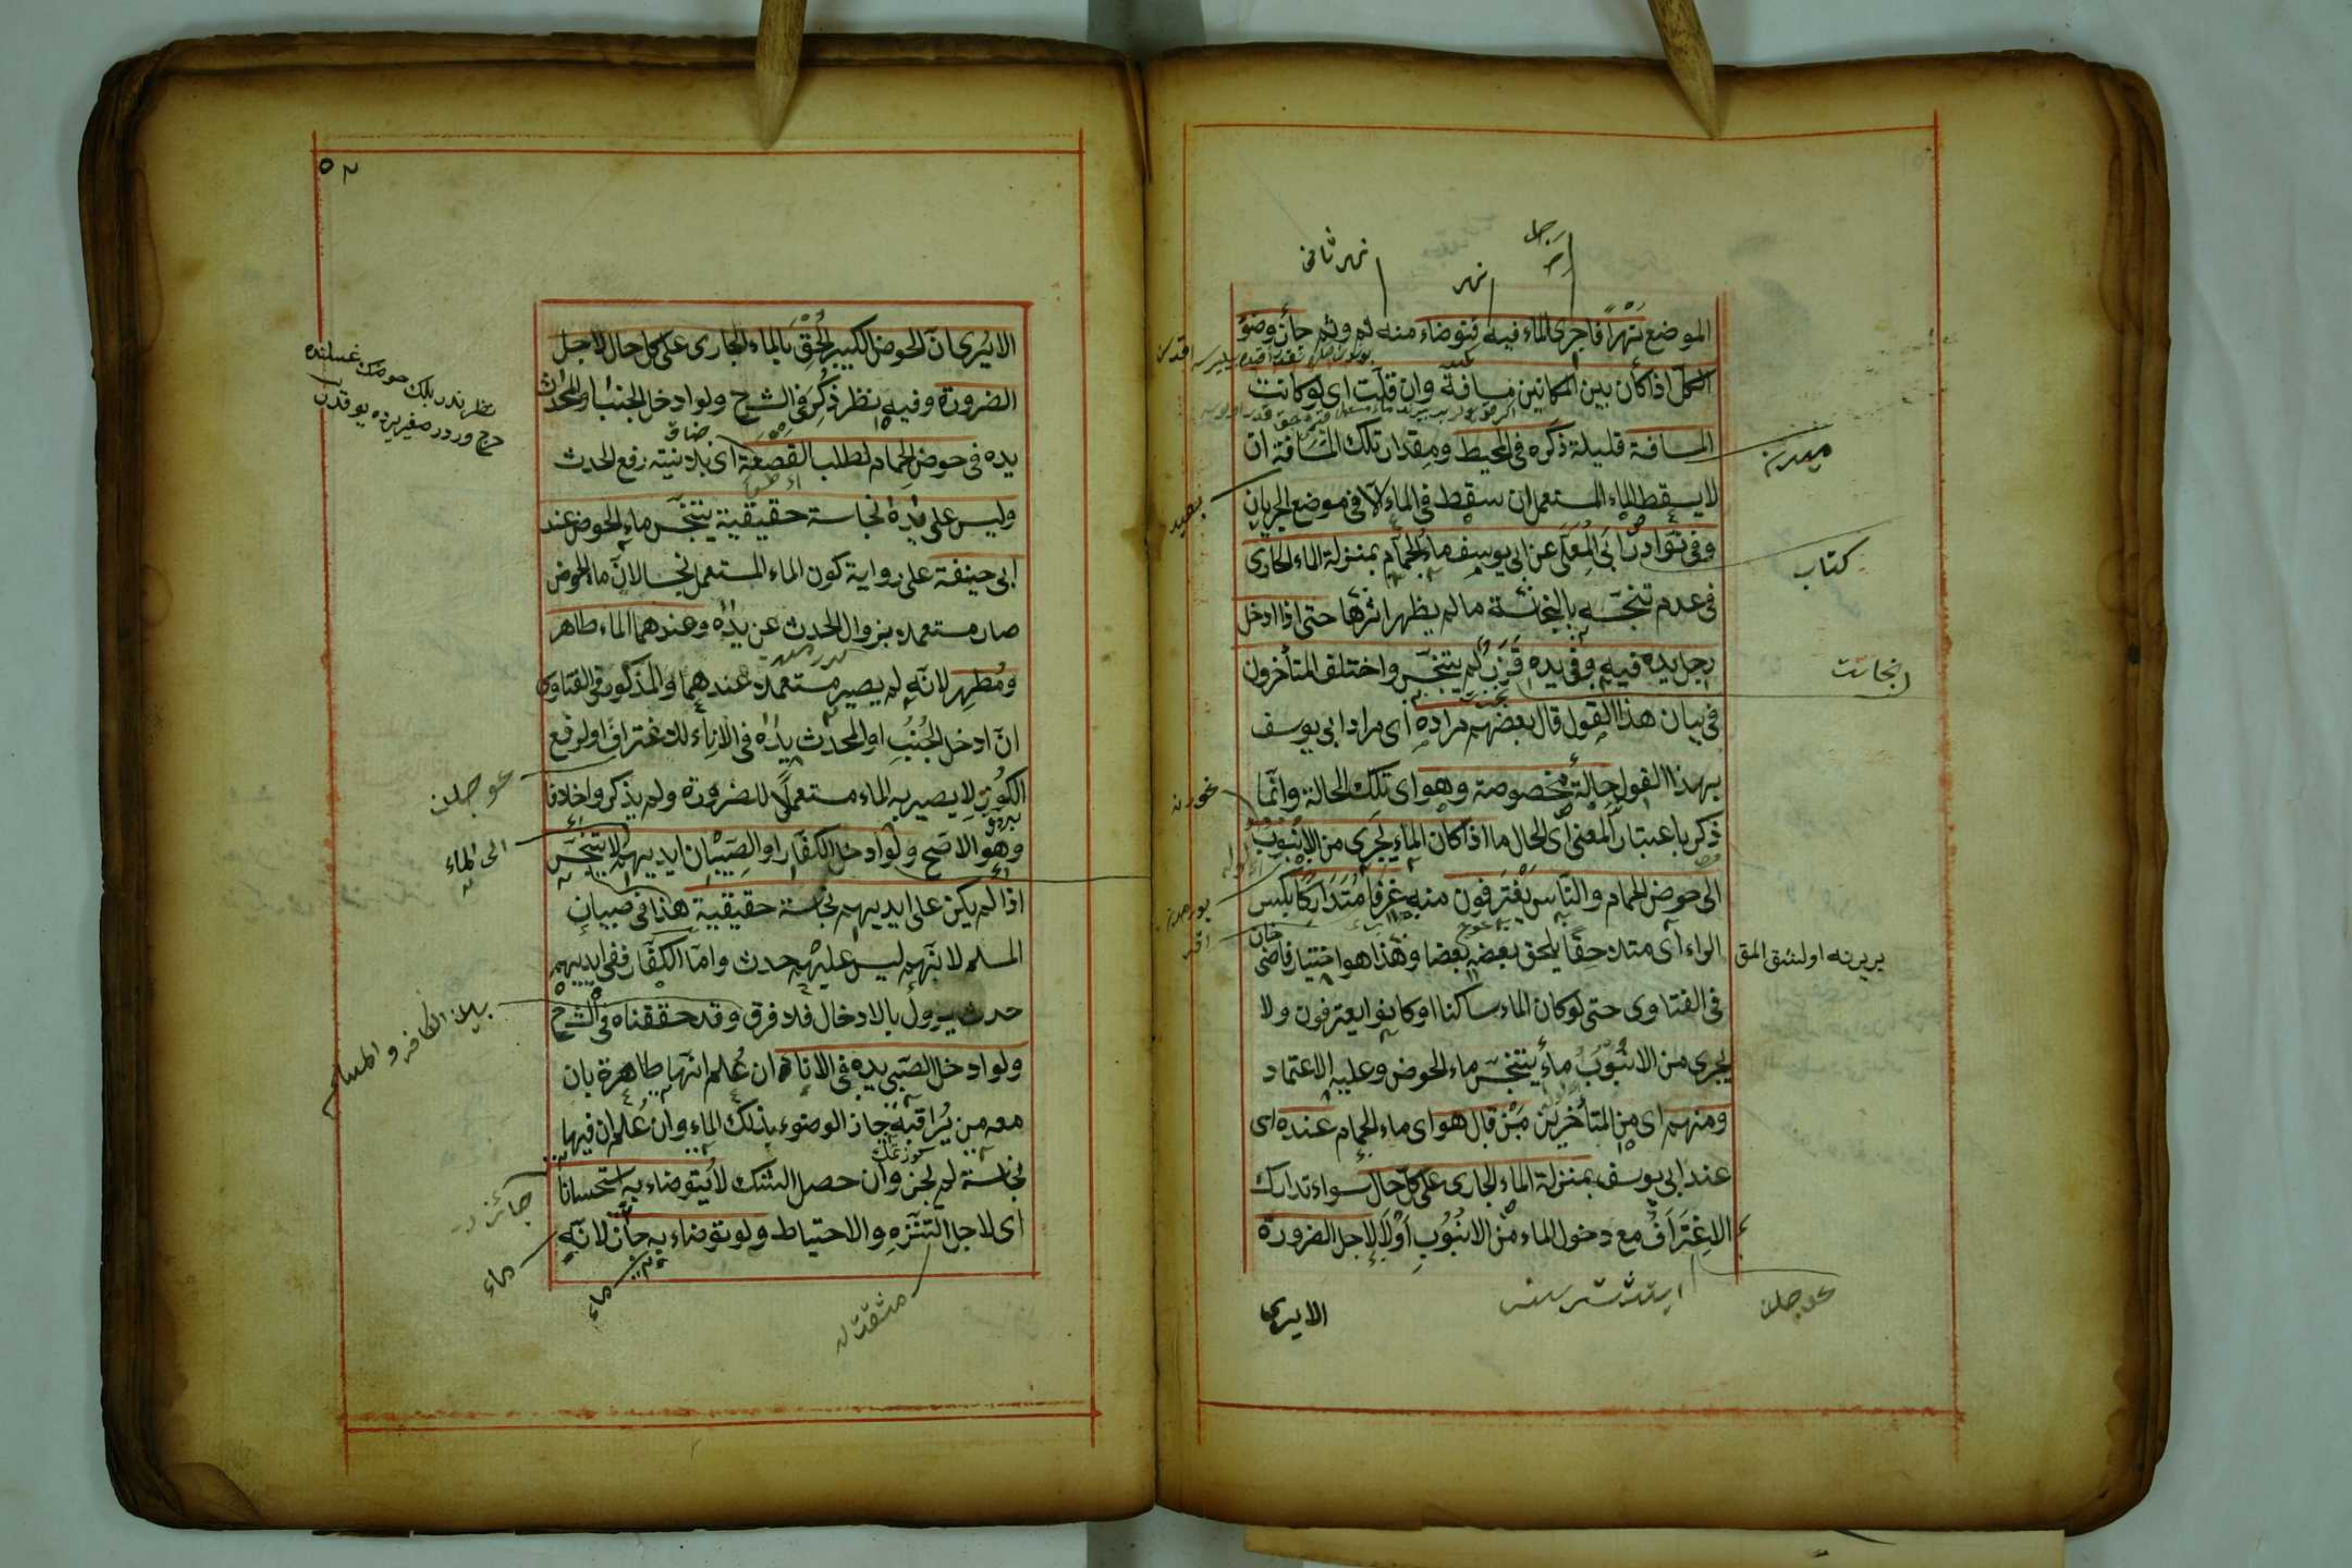 الموضع نهراً فاجرى الماء فيه فتوضاء منه ثم وثم جاز وضوء
الكل اذا كان بين المكانين مسافة وان قلت اى لو كانت
المسافة قليلة ذكره في المحيط ومقدار تلك المسافة ان
لا يسقط الماء المستعمل ان سقط في الماء الا في موضع الجريان
وفي نوادر ابى المعلى عن ابى يوسف ماء الحمام بمنزلة الماء الجارى
في عدم تنجسه بالنجاسة ما لم يظهر اثرها حتى اذا ادخل
رجل يده فيه وفي يده قزر لم يتنجس واختلف المتأخرون
في بيان هذا القول قال بعضهم مراده اى مراد ابى يوسف
بهذا القول حالة مخصوصة وهو اى تلك الحالة وانما
ذكر باعتبار المعنى اى الحال ما اذا كان الماء يجرى من الانبوب
الى حوض الحمام والناس يغترفون منه غرفا متداركا بكسر
الراء اى متلاحقا يلحق بعضه بعضا وهذا هو اختيار قاضى خان
في الفتاوى حتى لو كان الماء ساكنا او كانوا يغترفون ولا
يجرى من الانبوب ماء يتنجس ماء الحوض وعليه الاعتماد
ومنهم اى من المتأخرين من قال هو اى ماء الحمام عنده اى
عند ابى يوسف بمنزلة الماء الجارى على كل حال سواء تدارك
الاغتراف مع دخول الماء من الانبوب اولا لاجل الضرورة
الايرى
نهر ثانى
نهر
رجل
كتاب
نجاست
الايرى ان الحوض الكبير الحق بالماء الجارى على كل حال لاجل
الضرورة وفيه نظر ذكر في الشرح ولو ادخل الجنب او المحدث
يده في حوض الحمام لطلب القصعة اى بلا نية رفع الحدث
وليس على يده نجاسة حقيقية يتنجس ماء الحوض عند
ابى حنيفة على رواية كون الماء المستعمل نجسا لان ماء الحوض
صار مستعملا بزوال الحدث عن يده وعندهما الماء طاهر
ومطهر لانه لم يصير مستعملا عندهما والمذكور في الفتاوى
ان ادخل الجنب او المحدث يده في الاناء للاغتراف او لرفع
الكوز لا يصير به الماء مستعملا للضرورة ولم يذكروا خلافا
وهو الاصح ولو ادخل الكفار او الصبيان ايديهم لا يتنجس
اذا لم يكن على ايديهم نجاسة حقيقية هذا في صبيان
المسلم لانهم ليس عليهم حدث واما الكفار ففى ايديهم
حدث يزول بالادخال فلا فرق وقد حققناه في الشرح
ولو ادخل الصبى يده في الاناء ان علم انها طاهرة بان
معه من يراقبه جاز الوضوء بذلك الماء وان علم ان فيها
نجاسة لم يجز وان حصل الشك لا يتوضاء به استحسانا
اى لاجل التنزه والاحتياط ولو توضاء به جاز لانه
الى الماء
بين الكافر والمسلم
جائز
ماء
ماء